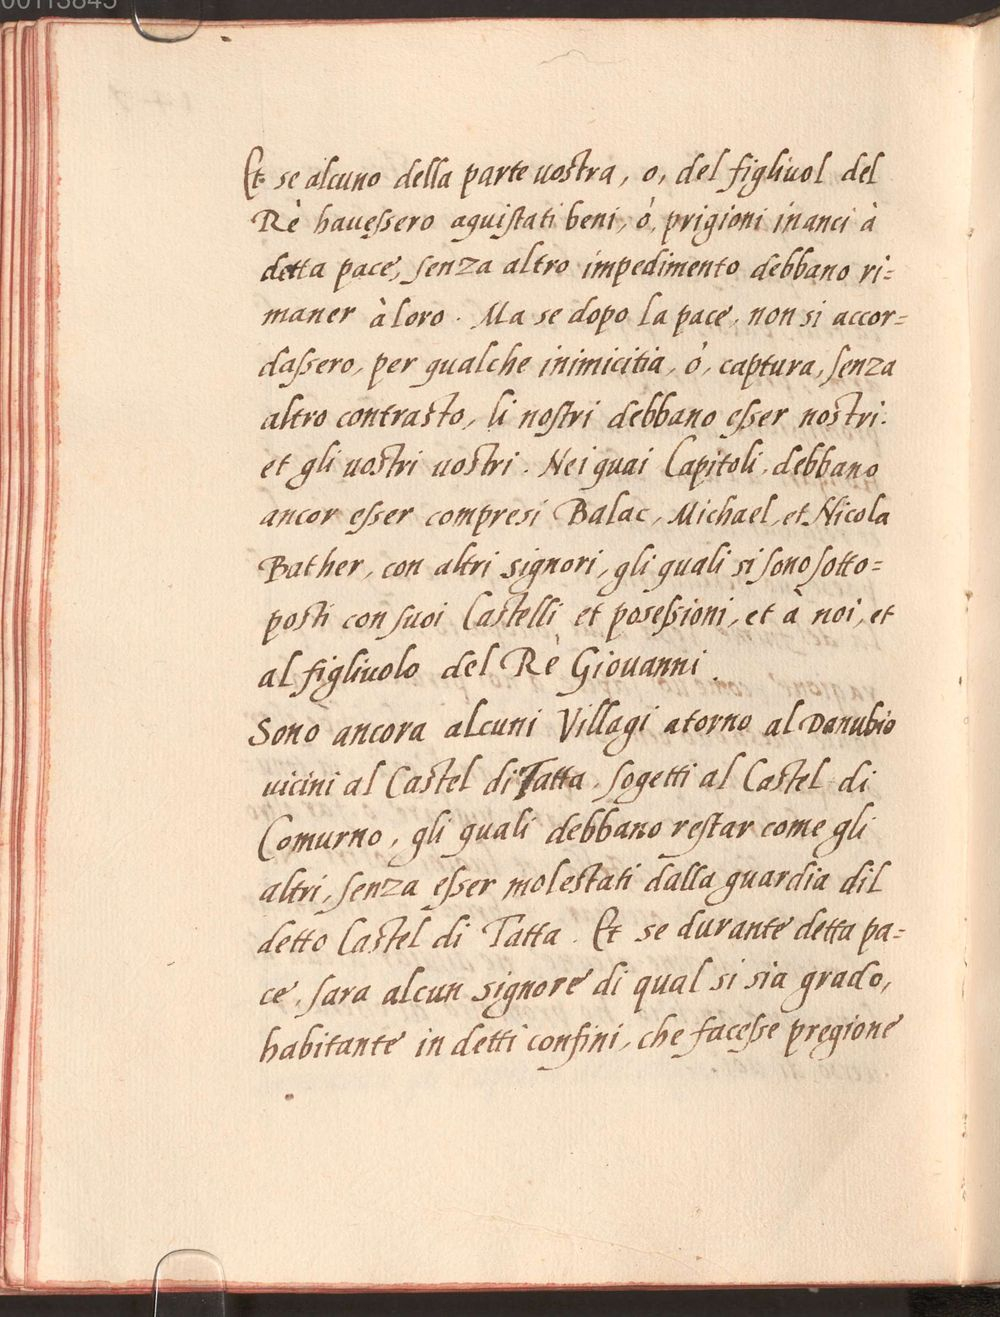 00113845
Et se alcuno della parte uostra, o, del figliuol del
Rè hauessero aquistati beni, ó, prigioni inanci à
detta pace, senza altro impedimento debbano ri=
maner à loro. Ma se dopo la pace, non si accor=
dassero, per qualche inimicitia, ó, captura, senza
altro contrasto, li nostri debbano esser nostri.
et gli uostri uostri. Nei quai Capitoli, debbano
ancor esser compresi Balac, Michael, et Nicola
Bather, con altri signori, gli quali si sono sotto=
posti con suoi Castelli et posessioni, et à noi, et
al figliuolo del Rè Giouanni.
Sono ancora alcuni Villagi atorno al Danubio
uicini al Castel di Tatta, sogetti al Castel di
Comurno, gli quali debbano restar come gli
altri, senza esser molestati dalla guardia dil
detto Castel di Tatta. Et se durante detta pa=
ce, sara alcun signore di qual si sia grado,
habitante in detti confini, che facesse pregione